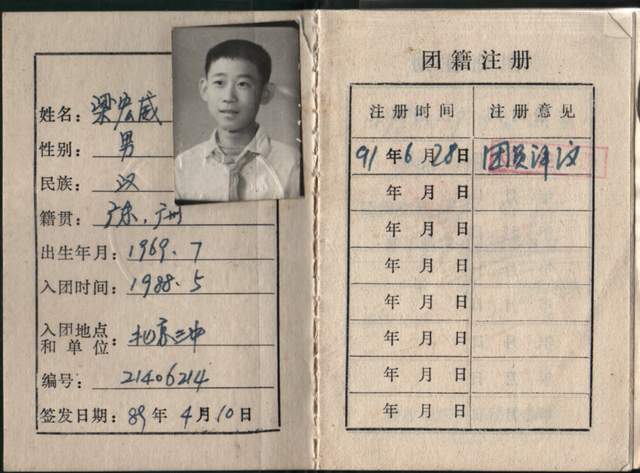 姓名：梁宏威
性别：男
民族：汉
籍贯：广东．广州
出生年月：1969．7
入团时间：1988．5
入团地点
和单位：北京三中
编号：21406214
签发日期：89年4月10日
团籍注册
注册时间 注册意见
91年6月28日 团员评议
年 月 日
年 月 日
年 月 日
年 月 日
年 月 日
年 月 日
年 月 日